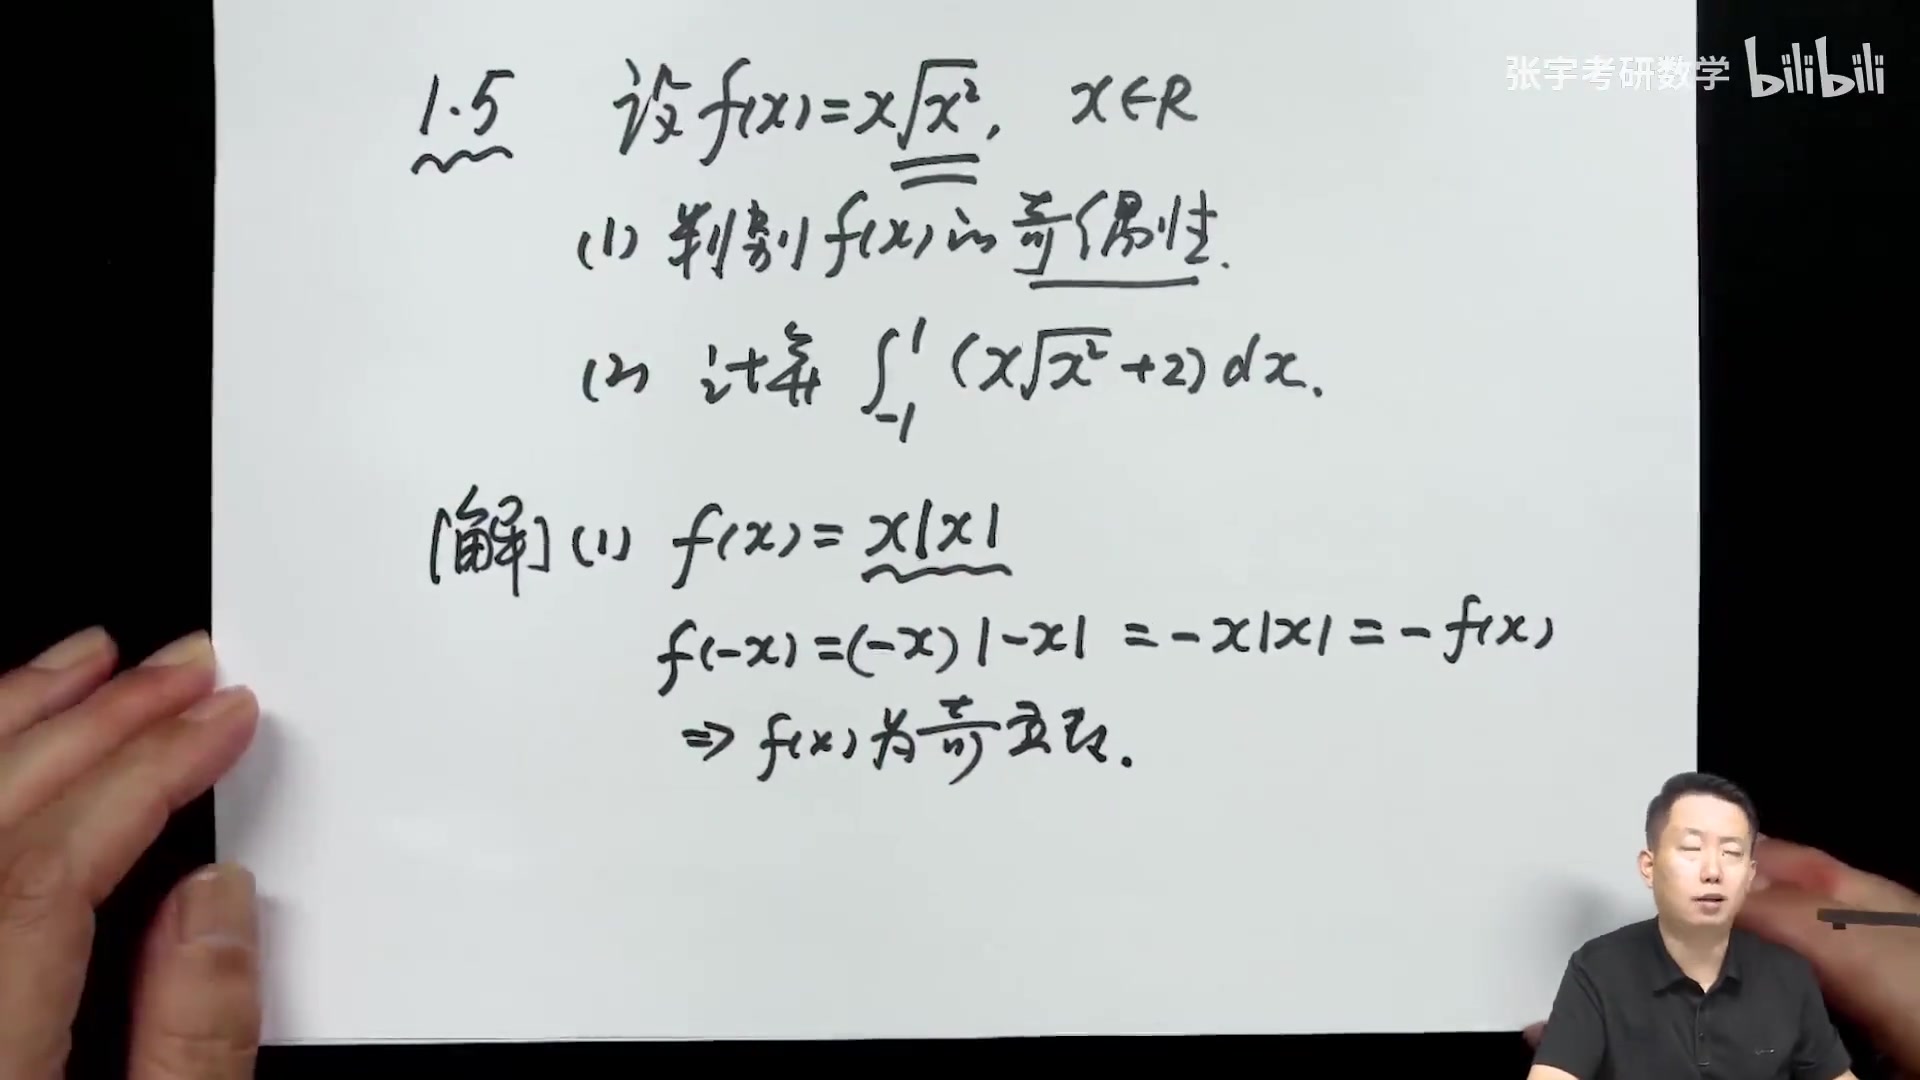 张宇考研数学 bilibili
1.5 设f(x)=x√x², x∈R
(1) 判别f(x)的奇偶性.
(2) 计算 ∫₋₁¹ (x√x²+2)dx.
[解] (1) f(x)=x|x|
f(-x)=(-x)|-x| =-x|x|=-f(x)
⇒ f(x)为奇函数.